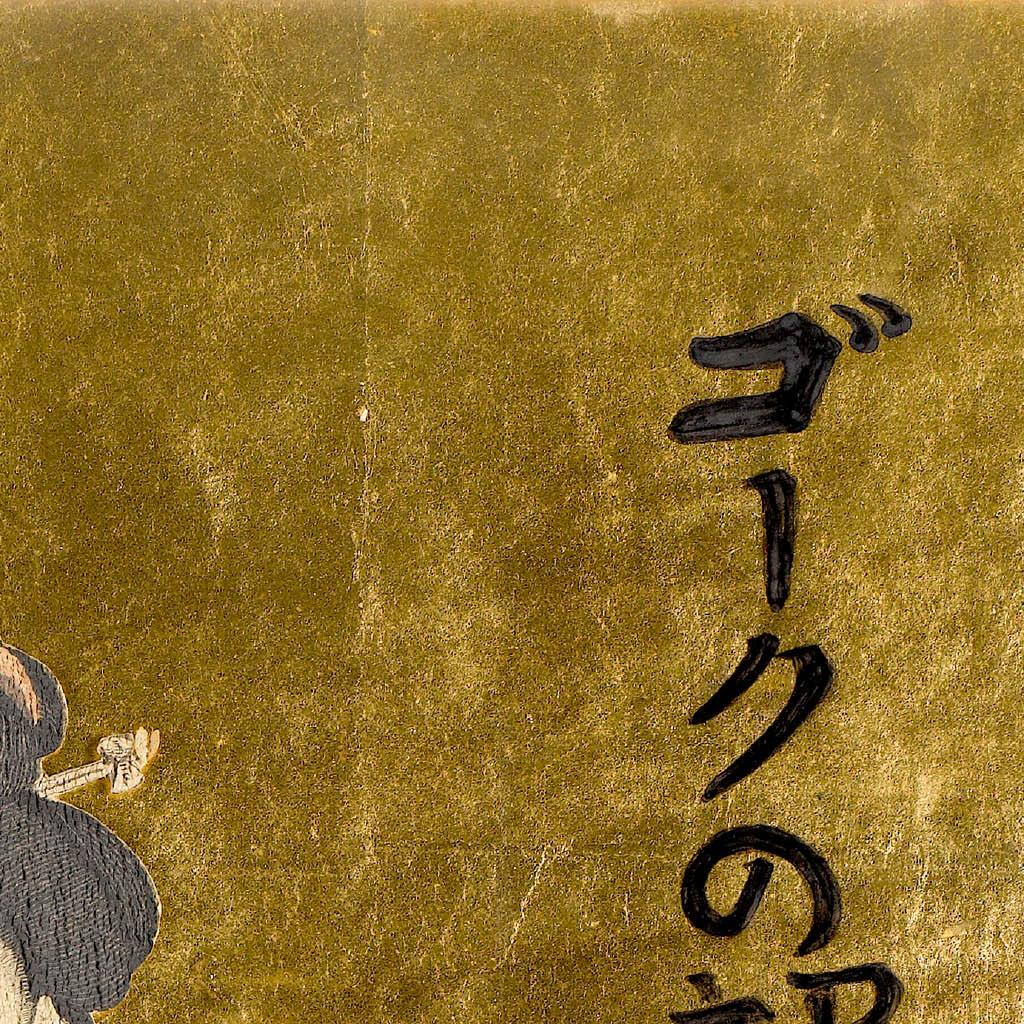 ゴークの